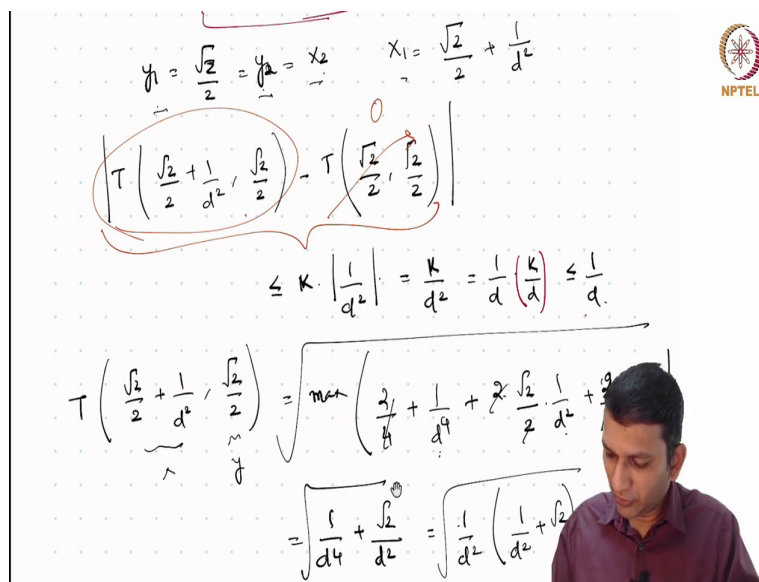 y₁ = √2/2 = y₂ = x₂    x₁ = √2/2 + 1/d²
NPTEL
0
|T(√2/2 + 1/d², √2/2) - T(√2/2, √2/2)|
≤ K · |1/d²| = K/d² = 1/d · (K/d) ≤ 1/d.
T(√2/2 + 1/d², √2/2) = √max(2/4 + 1/d⁴ + 2 · √2/2 · 1/d² +
y
= √1/d⁴ + √2/d² = √1/d² (1/d² + √2)